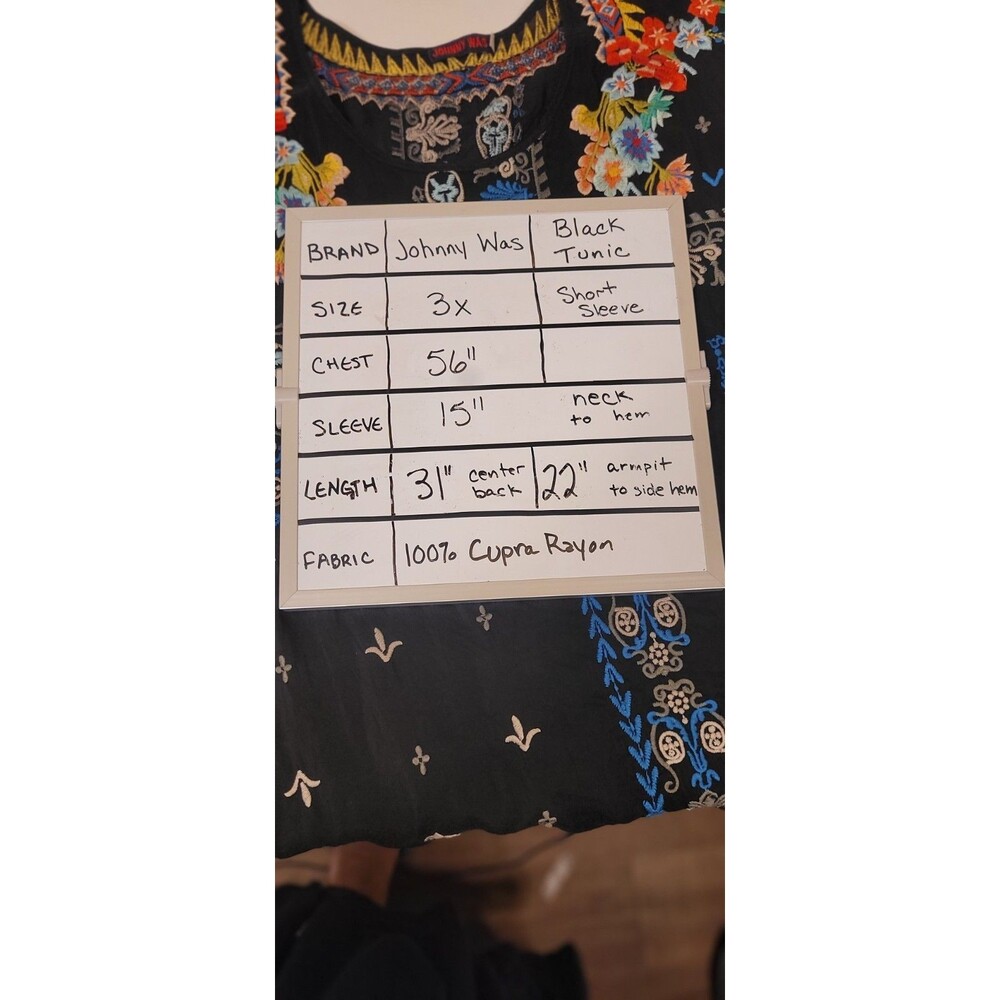 JOHNNY WAS
BRAND Johnny Was Black Tunic
SIZE 3x Short Sleeve
CHEST 56"
SLEEVE 15" neck to hem
LENGTH 31" center back 22" armpit to side hem
FABRIC 100% Cupra Rayon